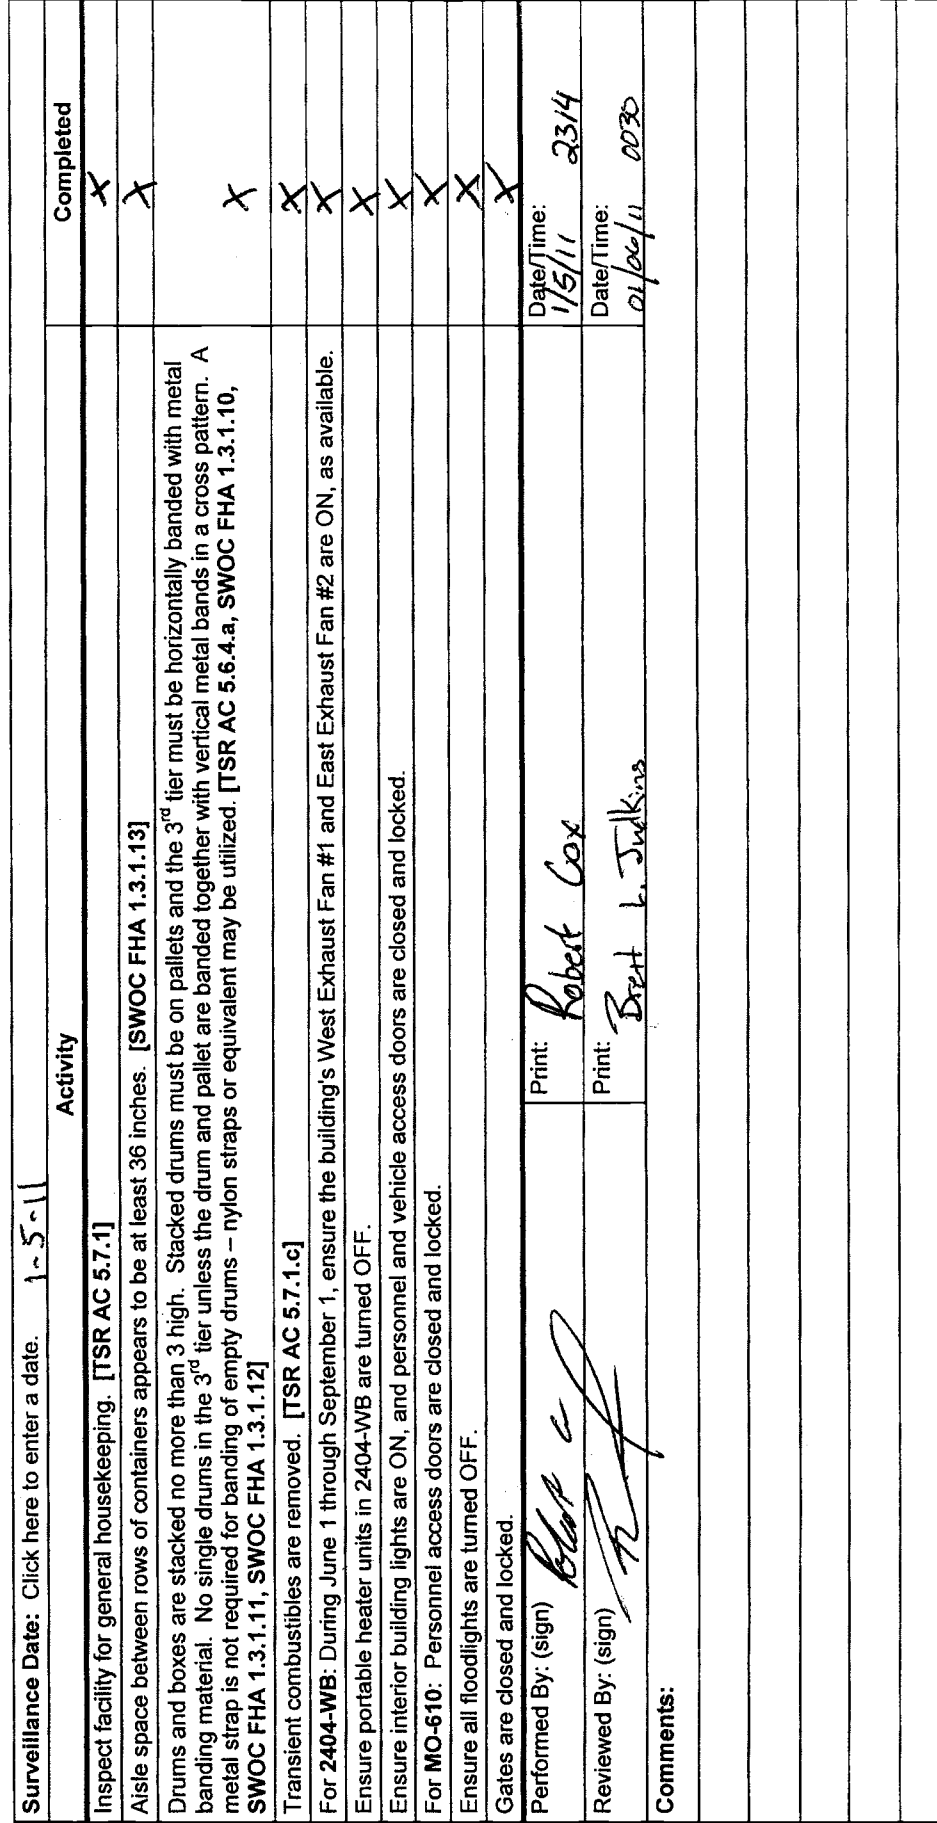 Surveillance Date: Click here to enter a date. 1-5-11
Activity Completed
Inspect facility for general housekeeping. [TSR AC 5.7.1] X
Aisle space between rows of containers appears to be at least 36 inches. [SWOC FHA 1.3.1.13] X
Drums and boxes are stacked no more than 3 high. Stacked drums must be on pallets and the 3rd tier must be horizontally banded with metal
banding material. No single drums in the 3rd tier unless the drum and pallet are banded together with vertical metal bands in a cross pattern. A
metal strap is not required for banding of empty drums – nylon straps or equivalent may be utilized. [TSR AC 5.6.4.a, SWOC FHA 1.3.1.10, X
SWOC FHA 1.3.1.11, SWOC FHA 1.3.1.12]
Transient combustibles are removed. [TSR AC 5.7.1.c] X
For 2404-WB: During June 1 through September 1, ensure the building's West Exhaust Fan #1 and East Exhaust Fan #2 are ON, as available. X
Ensure portable heater units in 2404-WB are turned OFF. X
Ensure interior building lights are ON, and personnel and vehicle access doors are closed and locked. X
For MO-610: Personnel access doors are closed and locked. X
Ensure all floodlights are turned OFF. X
Gates are closed and locked. X
Performed By: (sign) Print: Robert Cox Date/Time:
1/5/11 2314
Reviewed By: (sign) Print: Brett L. Judkins Date/Time:
01/06/11 0030
Comments: